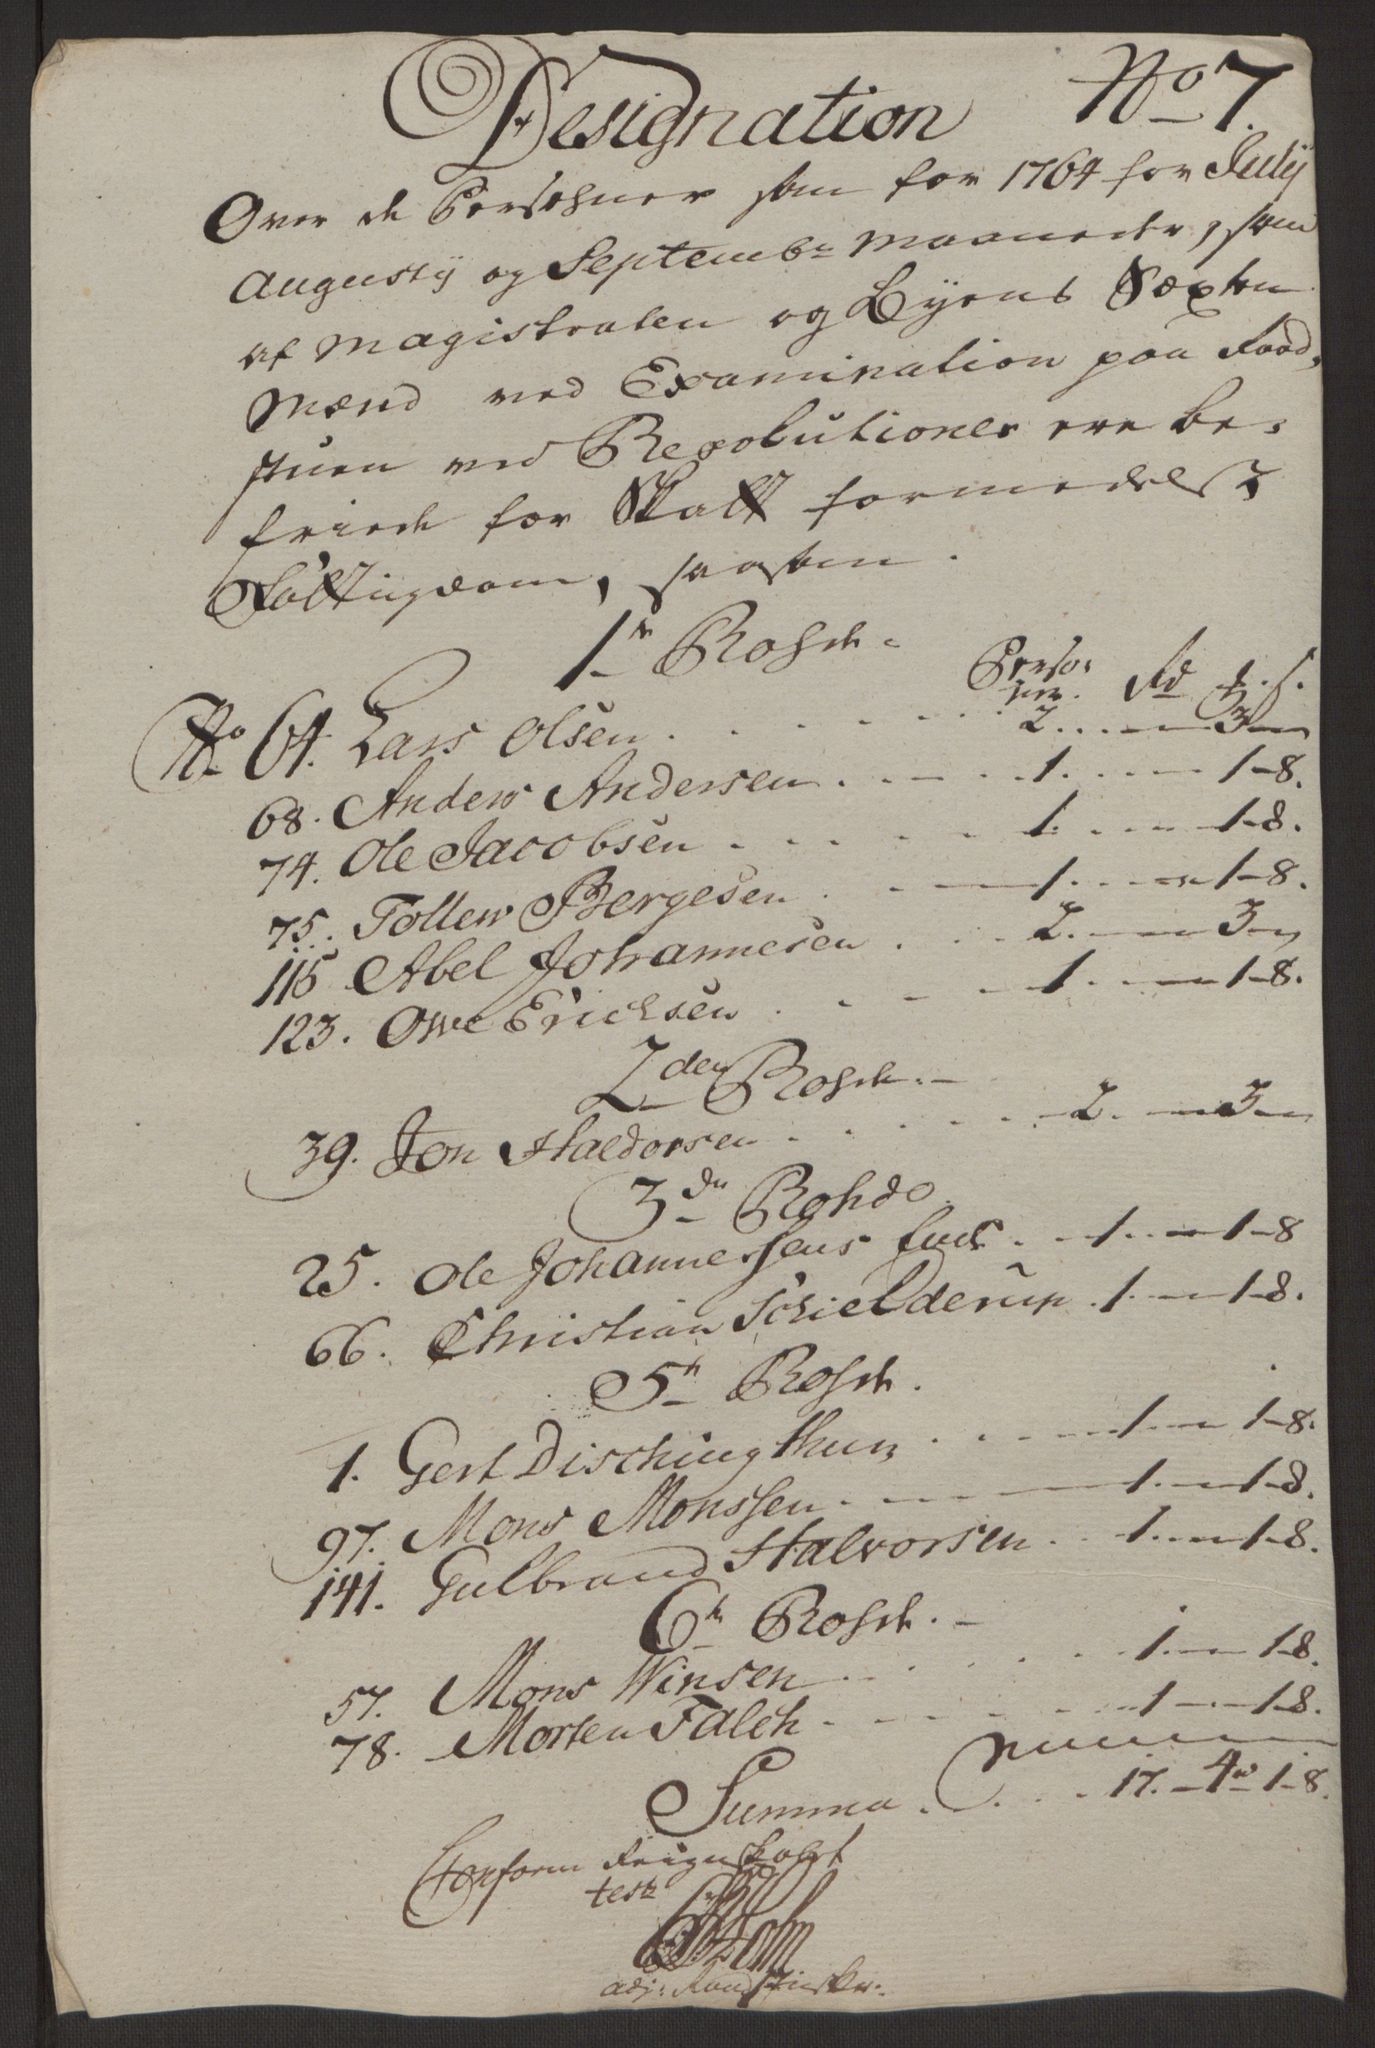 Designation No 7.
Over de Persohner som for 1764 for Julij
Augustij og Septembr Maaneder, som
af Magistraten og Byens Sexten
Mænd ved Examination paa Raad,
stuen ved Resolutioner ere be,
friede for Skatt formedelst
Fattigdom, saasom.
1te Rohde.
Perso,
ner. Rd # s.
No 64. Lars Olsen . . . 2 . . . 3 —
68. Anders Andersen . . . 1 . . . 1 - 8.
74. Ole Jacobsen . . . 1 . . . 1 - 8.
75. Tollew Bergesen . . . 1 . . . 1 - 8.
115 Abel Johannesen . . . 2 . . . 3 —
123. Owe Erichsen . . . 1 . . . 1 - 8.
2den Rohde. —
39. Jon Haldorsen . . . 2 . . . 3 —
3die Rohde.
25. Ole Johannessens Enke . . 1 . . 1 - 8
66. Christian Schielderup . 1 . . 1 - 8.
5te Rohde.
1. Gert Dischingthun . . . 1 . . 1 - 8.
97. Mons Monssen . . . 1 . . 1 - 8.
141. Gulbrand Halvorsen . . 1 . . 1 - 8.
6te Rohde. —
57. Mons Winsen . . . 1 . . 1 - 8.
78. Morten Falch . . . 1 . . 1 - 8.
Summa . . . 17. — 4 — 1 - 8.
Conform
test
Holm
adj: Raadstueskr: